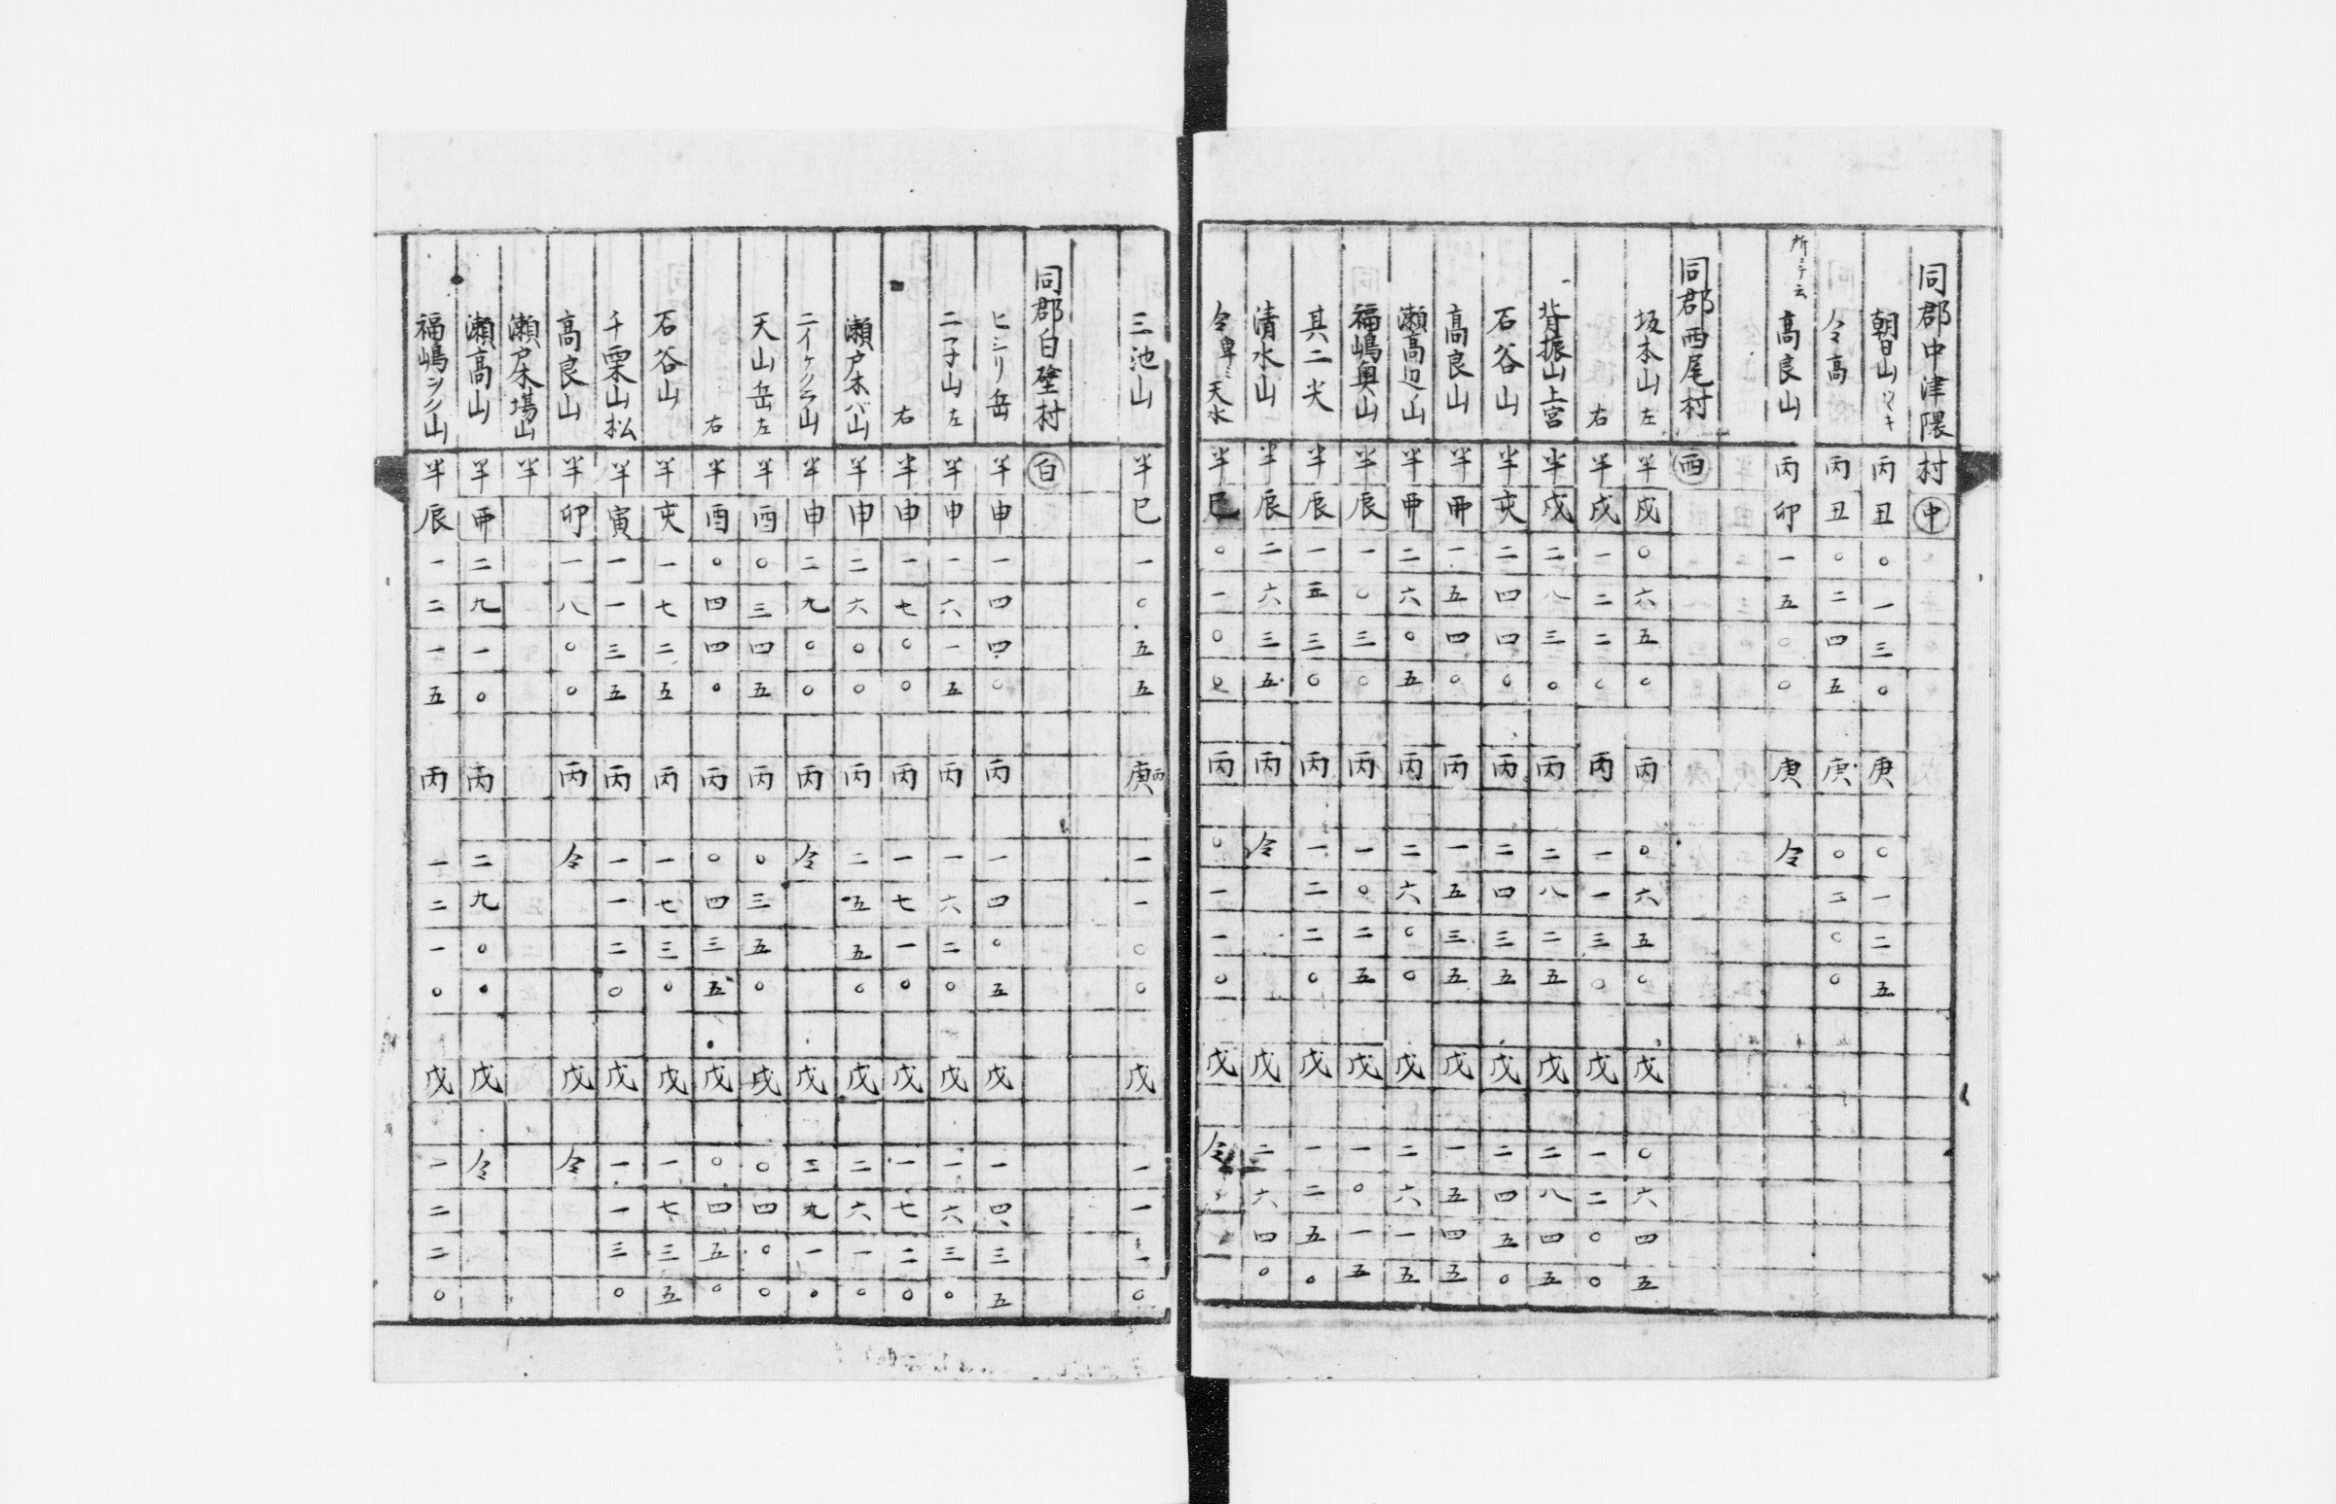 同郡中津隈村㊥
朝日山ツヾキ 丙丑〇一三〇 庚〇一二五
仝高 丙丑〇二四五 庚〇二〇〇
所ニテ云 高良山 丙卯一五〇〇 庚仝
同郡西尾村 西
坂本山左 半戌〇六五〇 丙〇六五〇 戊〇六四五
右 半戌一二二〇 丙一一三〇 戊一二〇〇
背振山上宮 半戌二八三〇 丙二八二五 戊二八四五
石谷山 半亥二四四〇 丙二四三五 戊二四五〇
高良山 半丑一五四〇 丙一五三五 戊一五四五
瀬高辺ノ山 半丑二六〇五 丙二六〇〇 戊二六一五
福嶋奥山 半辰一〇三〇 丙一〇二五 戊一〇一五
其二尖 半辰一三三〇 丙一二二〇 戊一二五〇
清水山 半辰二六三五 丙仝 戊二六四〇
仝卑ミ天水 半巳〇一〇 丙〇一一〇 戊仝
三池山 半巳一〇五五 庚丙一一〇〇 戊一一一〇
同郡白壁村 白
ヒシリ岳 半申一四四〇 丙一四〇五 戊一四三五
二子山左 半申一六一五 丙一六二〇 戊一六三〇
右 半申一七〇〇 丙一七一〇 戊一七二〇
瀬戸木バ山 半申二六〇〇 丙二五五〇 戊二六一〇
二イケクラ山 半申二九〇〇 丙仝 戊二九一〇
天山岳左 半酉〇三四五 丙〇三五〇 戊〇四〇〇
右 半酉〇四四〇 丙〇四三五 戊〇四五〇
石谷山 半亥一七二五 丙一七三〇 戊一七三五
千栗山松 半寅一一三五 丙一一二〇 戊一一三〇
高良山 半卯一八〇〇 丙仝 戊仝
瀬戸木場山 半
瀬高山 半丑二九一〇 丙二九〇〇 戊仝
福嶋シノ山 半辰一二一五 丙一二一〇 戊一二二〇